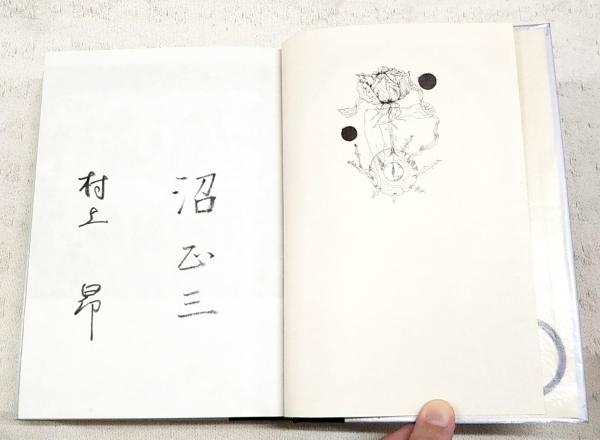 沼正三
村上昴